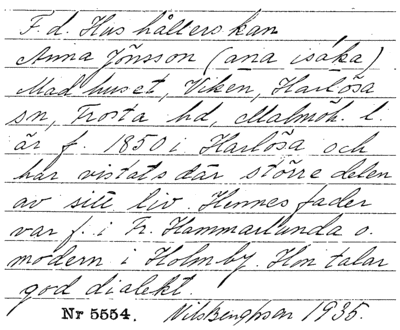 F.d. Hushållerskan
Anna Jönsson (ana isáka)
Mad huset, Viken, Harlösa
sn, Frosta hd, Malmöh. l.
är f. 1850 i Harlösa och
har vistats där större delen
av sitt liv. Hennes fader
var f. i Fr. Hammarlunda o.
modern i Holmby. Hon talar
god dialekt.
Nr 5554. Nils Bengtsson 1935.